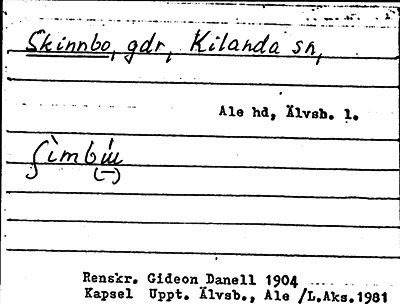 Skinnbo, gdr, Kilanda sn,
Ale hd, Älvsb. l.
Renskr. Gideon Danell 1904
Kapsel Uppt. Älvsb., Ale /L.Aks.1981